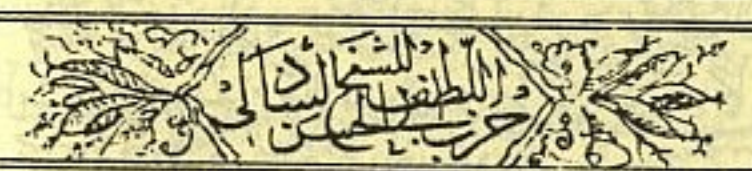 حزب اللطف للشيخ الحسن الشاذلى